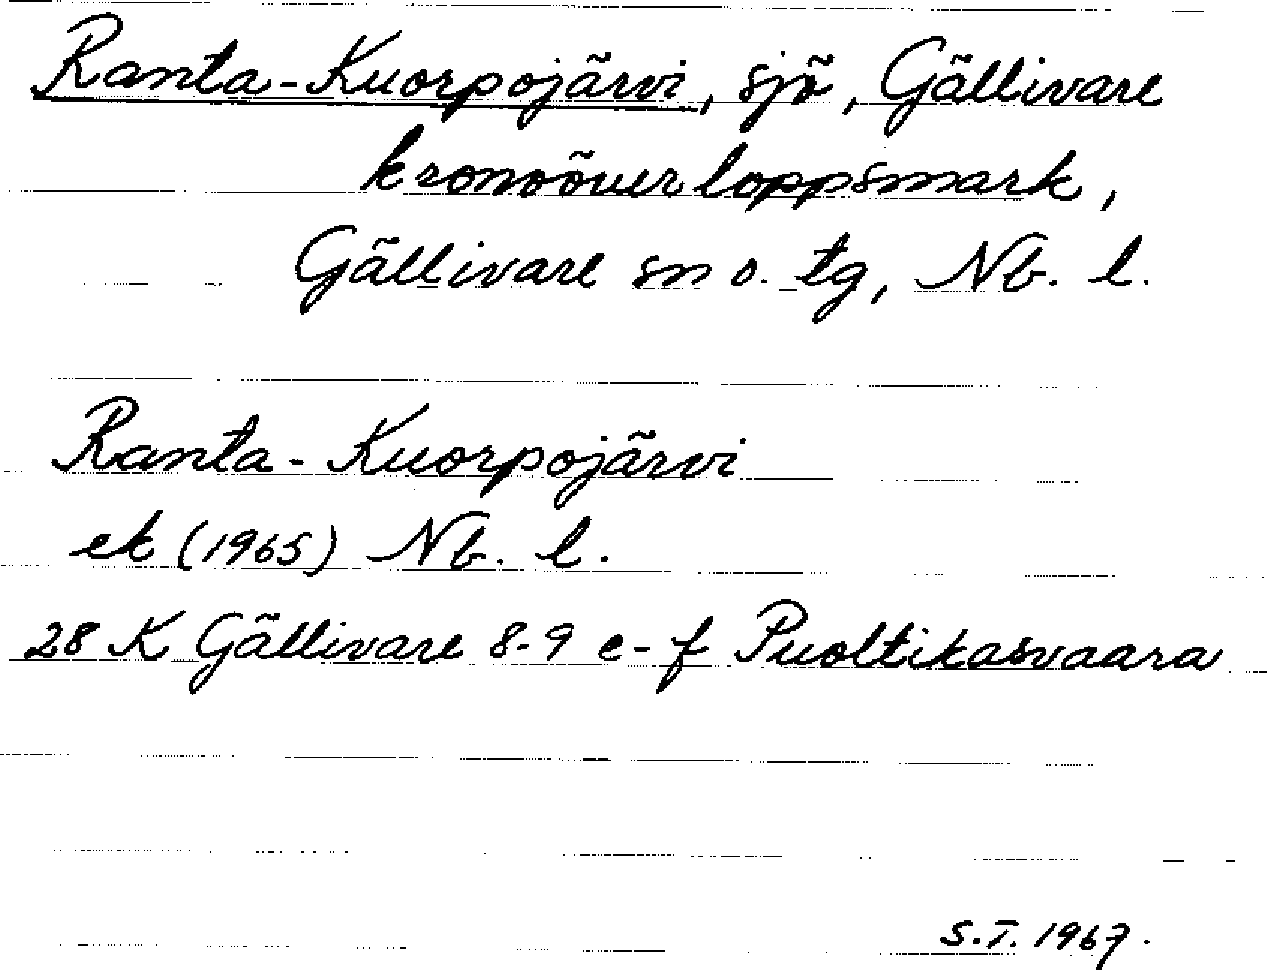 Ranta-Kuorpojärvi, sjö, Gällivare
kronoöverloppsmark,
Gällivare sn o. tg, Nb. l.
Ranta-Kuorpojärvi
ek (1965) Nb. l.
28 K Gällivare 8-9 e-f Puoltikasvaara
S.T. 1967.